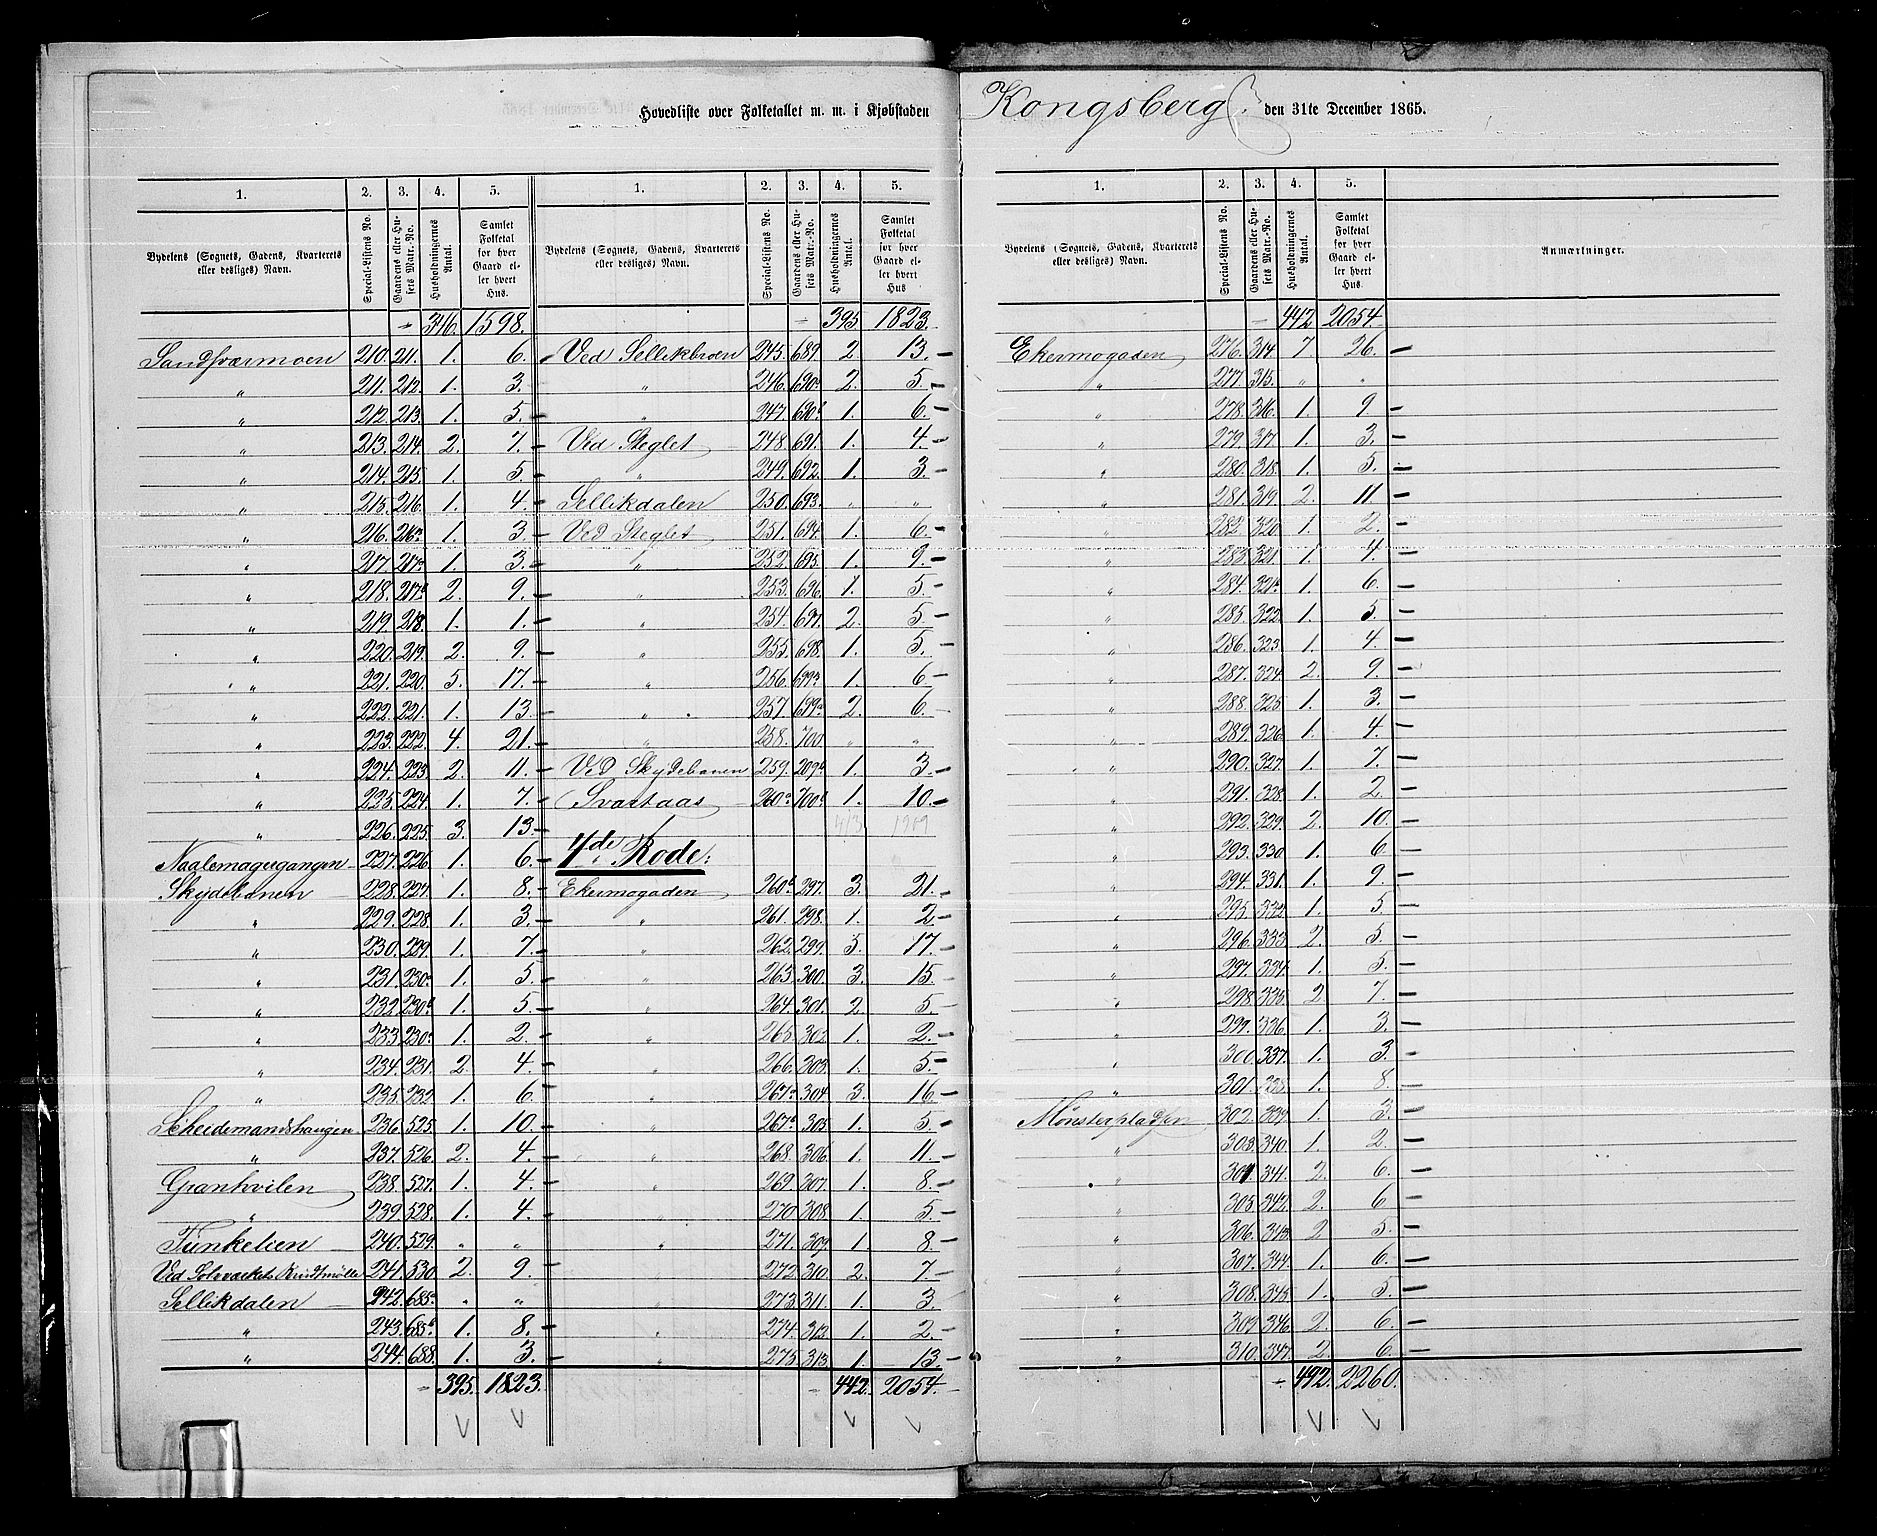 Hovedliste over Folketallet m. m. i Kjøbstaden Kongsberg, den 31te December 1865.
1. 2. 3. 4. 5.
Bydelens (Sognets, Gadens, Kvarterets eller desliges) Navn. Special-Listens No. Gaardens eller Husets Matr.-No. Husholdningernes Antal. Samlet Folketal for hver Gaard eller hvert Hus.
346. 1598.
Sandsværmoen 210. 211. 1. 6.
" 211. 212. 1. 3.
" 212. 213. 1. 5.
" 213. 214. 2. 7.
" 214. 215. 1. 5.
" 215. 216. 1. 4.
" 216. 1. 3.
" 217. 217a 1. 3.
" 218. 217b 2. 9.
" 219. 218. 1. 1.
" 220. 219. 2. 9.
" 221. 220. 5. 17.
" 222. 221. 1. 13.
" 223. 222. 4. 21.
" 224. 223. 2. 11.
" 225. 224. 1. 7.
" 226. 225. 3. 13.
Naglemagergangen 227. 226. 1. 6.
Skydebanen 228. 227. 1. 8.
" 229. 228. 1. 3.
" 230. 229. 1. 7.
" 231. 230a 1. 5.
" 232. 230b 1. 5.
" 233. 230c 1. 2.
" 234. 231. 2. 4.
" 235. 232. 1. 6
Scheidemandshaugen 236. 525. 1. 10.
" 237. 526. 2. 4.
Granhvilen 238. 527. 1. 4.
" 239. 528. 1. 4.
Funkelien 240. 529. " "
Ved Sølvværkets Krudtmølle 241. 530. 2. 9.
Sellikdalen 242. 685a " "
" 243. 685b 1. 8.
" 244. 688. 1. 3.
395. 1823.
1. 2. 3. 4. 5.
Bydelens (Sognets, Gadens, Kvarterets eller desliges) Navn. Special-Listens No. Gaardens eller Husets Matr.-No. Husholdningernes Antal. Samlet Folketal for hver Gaard eller hvert Hus
395 1823.
Ved Sellikbroen 245. 689. 2. 13.
246. 690a 2. 5.
" 247. 690b 1. 6.
Ved Steglet 248. 691. 1. 4.
" 249. 692. 1. 3.
Sellikdalen 250. 693. " "
Ved Steglet 251. 694. 1. 6.
" 252. 695. 1. 9.
" 253. 696. 1. 5.
" 254. 697. 2. 5.
" 255. 698. 1. 5.
" 256. 699a 1. 6
" 257. 699b 2. 6.
" 258. 700 " "
Ved Skydebanen 259. 209b 1. 3.
Svartaas 260a 700b 1. 10.
413 1919
4de Rode:
Ekermogaden 260b 297. 3. 21.
" 261. 298. 1. 2
" 262. 299. 5. 17.
" 263. 300. 3. 15.
" 264. 301. 2. 5.
265. 302. 1. 2.
" 266. 303. 1. 5.
" 267a 304. 3. 16
" 267b 305. 1. 5.
" 268. 306. 1. 11.
" 269 307. 1. 8.
" 270 308. 1. 5.
" 271. 309. 1. 8.
272. 310. 2. 7.
" 273. 311. 1. 3.
" 274. 312. 1. 2.
" 275. 313. 1. 13.
442. 2054.
1. 2. 3. 4. 5.
Bydelens (Sognets, Gadens, Kvarterets eller desliges) Navn. Special-Listens No. Gaardens eller Husets Matr.-No. Husholdningernes Antal. Samlet Folketal for hver Gaard eller hvert Hus Anmærkninger.
442 2054.
Ekermogaden 276. 314. 7 26.
" 277. 315. " "
" 278. 316. 1. 9
" 279. 317. 1. 3.
" 280. 318. 1. 5.
" 281. 319. 2. 11.
" 282. 320. 1. 2.
" 283. 321. 1. 4
" 284. 321b 1. 6.
" 285. 322. 1. 5.
" 286. 323 1. 4.
" 287. 324. 2. 9.
" 288. 325 1. 3.
" 289. 326. 1. 4.
" 290. 327. 1. 7.
" 291. 328. 1. 2.
" 292. 329. 2. 10.
" 293. 330. 1. 6
" 294. 331. 1. 9.
" 295. 332. 1. 5.
" 296. 333. 2. 5.
" 297. 334. 1. 5.
" 298. 335. 2 7.
" 299. 336. 1. 3.
" 300. 337. 1. 3.
" 301. 338. 1. 8.
Mønsterpladsen 302. 339. 1. 3.
" 303. 340. 1. 2.
" 304. 341. 2. 6.
" 305. 342. 2. 6
306. 343. 2 5.
" 307. 344. 1. 6.
" 308. 345. 1. 5.
" 309 346. 2. 6.
" 310. 347. 2. 6.
492. 2260.